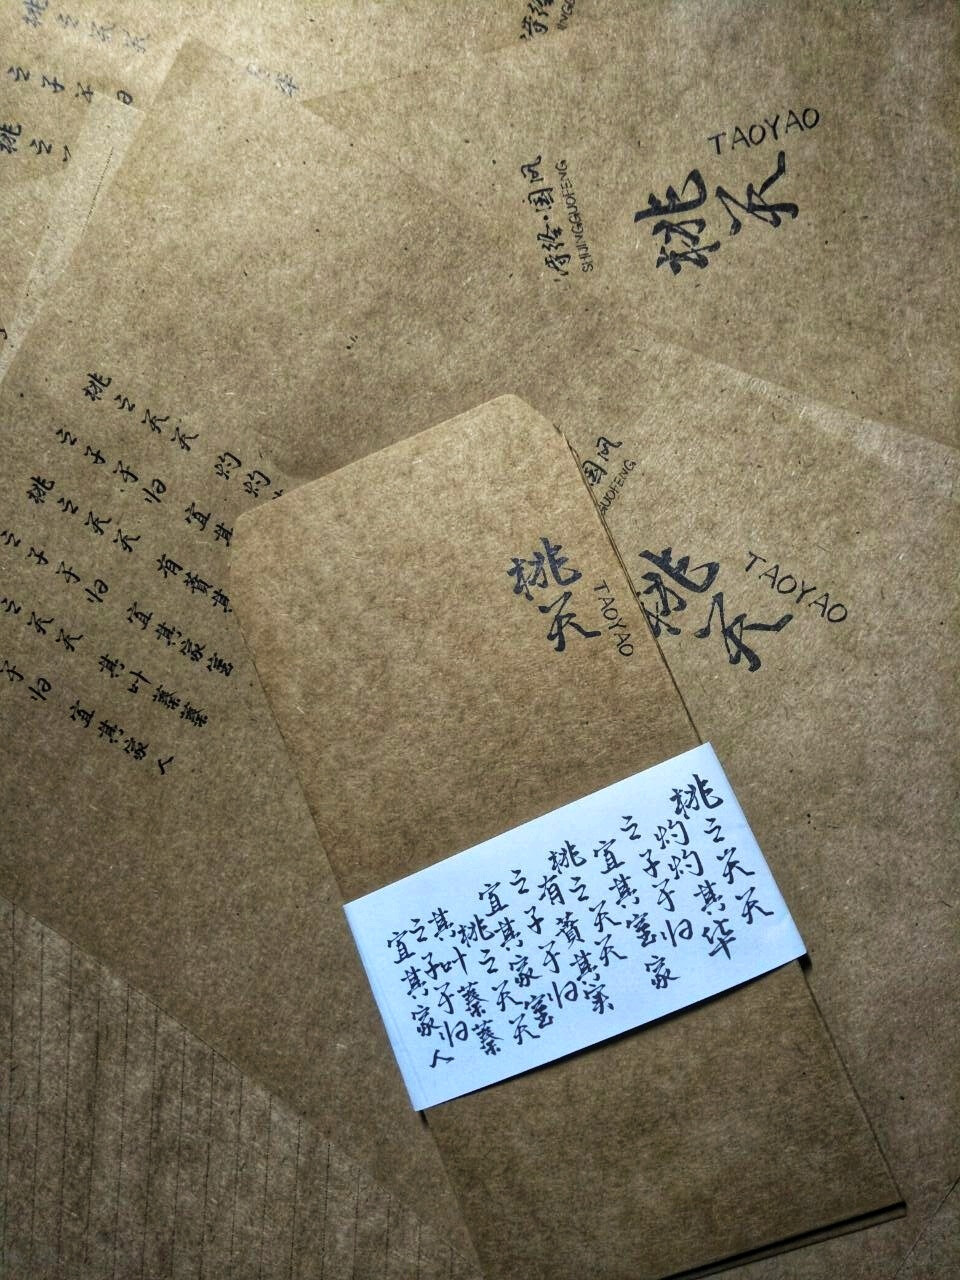 TAOYAO
桃夭
诗经·国风
SHIJINGGUOFENG
国风
GUOFENG
桃夭
TAOYAO
桃夭
TAOYAO
桃之夭夭
灼灼其华
之子于归
宜其室家
桃之夭夭
有蕡其实
之子于归
宜其家室
桃之夭夭
其叶蓁蓁
之子于归
宜其家人
桃之夭夭 灼灼
之子于归 宜其
桃之夭夭 有蕡其
之子于归 宜其家室
之夭夭 其叶蓁蓁
于归 宜其家人
桃之夭夭
之子于归
桃之